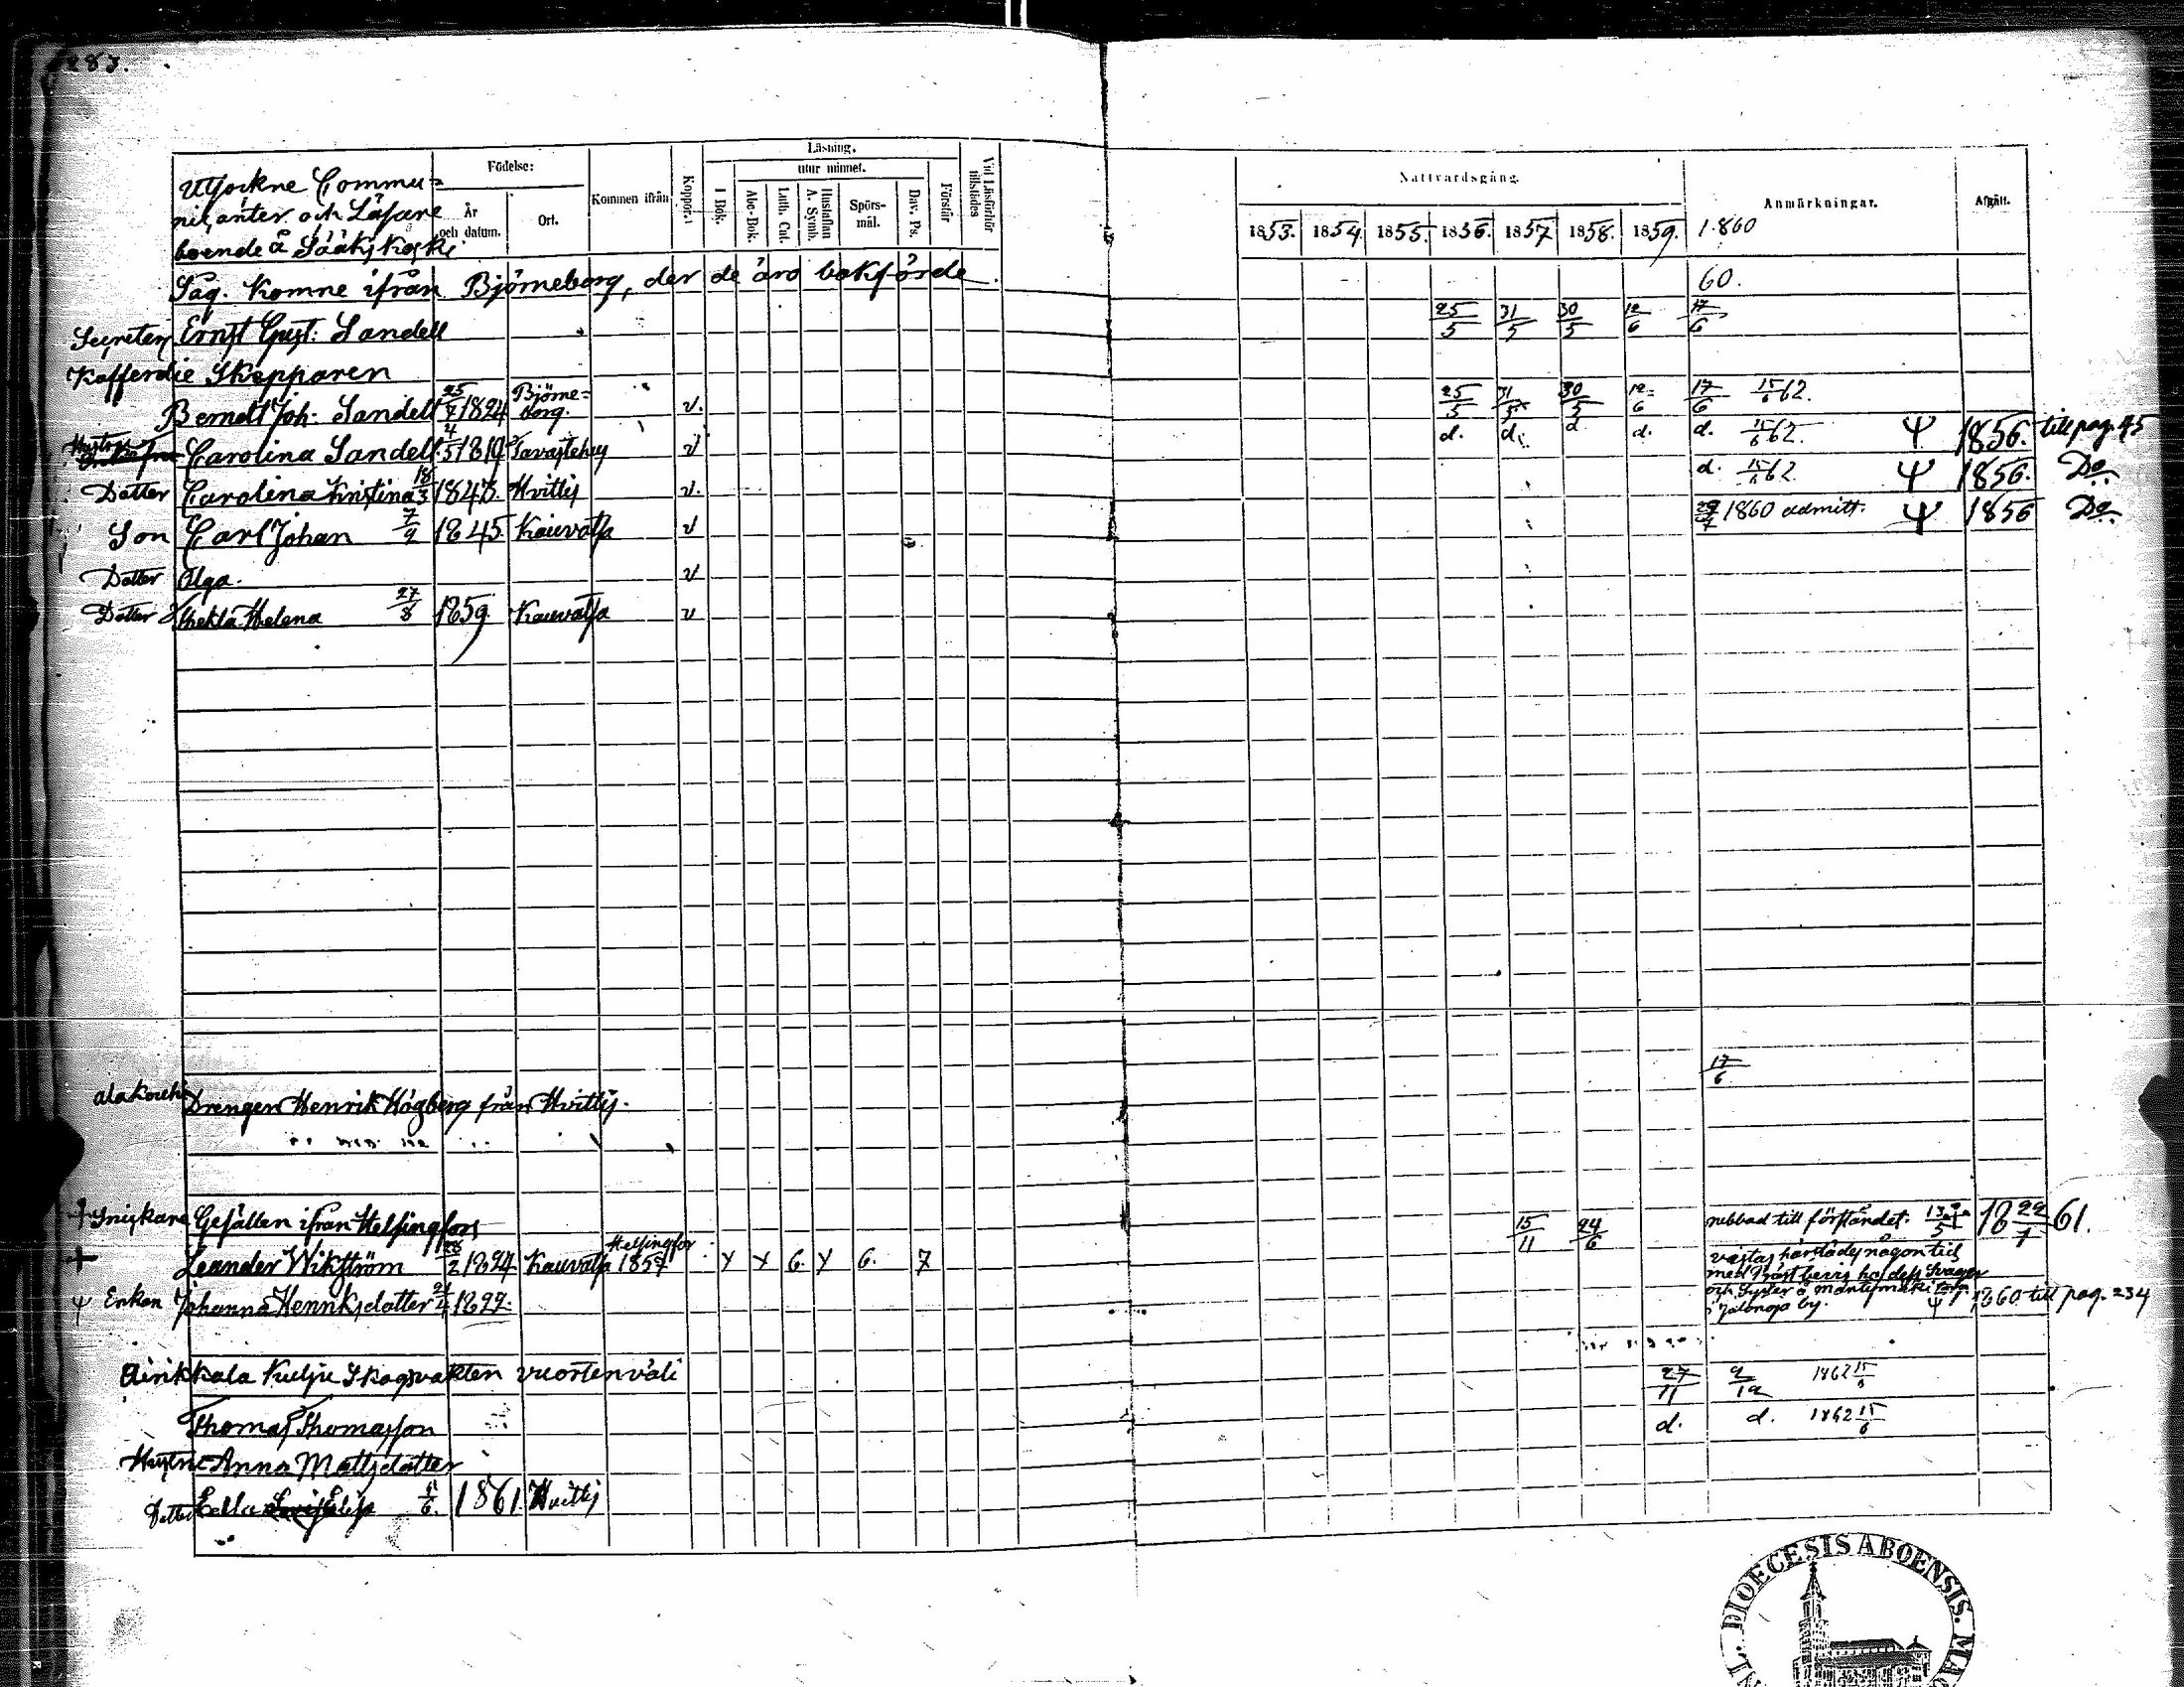 283.
Utsockne Commu=
nicanter och Läsare
boende å Sääkskoski
Födelse:
År
och datum.
Ort.
Kommen ifrån
Koppor.
Läsning.
utur minnet.
I Bok.
Abc-Bok.
Luth. Cat.
Hustaflan
A. Symb.
Spörs-
mål.
Dav. Ps.
Förstår
Vid Läsförhör
tillstädes
Nattvardsgång.
1853. 1854. 1855. 1856. 1857 1858. 1859. 1860
Anmärkningar.
Afgått.
Såg. Komne ifrån Björneborg, der de äro bokförde. 60.
Secreter Ernst Gust: Sandell 25/5 31/5 30/5 12/6 17/6
Kofferdie Skepparen
Berndt Joh: Sandell 25/7 1824 Björne=
borg. v. 25/5 31/5 30/5 12/6 17/6 15/6 62.
Hustru Carolina Sandell 4/5 1819 Tavastehus v d. d. d d. d. 15/6 62. Ψ 1856. till pag. 45
Dotter Carolina Kristina 18/3 1843. Hvittis v. d. 15/6 62. Ψ 1856. Do.
Son Carl Johan 7/9 1845. Kauvatsa v 1860 admitt. Ψ 1856 Do.
Dotter Olga. v
Dotter Thekla Helena 27/8 1859 Kauvatsa v
17/6
Drengen Henrik Högberg från Hvittis.
Snickare Gesällen ifrån Helsingfors 15/11 24/6 till förståndet. 18 22/7 61.
+ Leander Wikström 28/2 1824 Kauvatsa Helsingfor
1857 Y Y 6. Y 6. 7
vistas härstädes någon tid
med Prästbevis hos dess Svager
och Syster å Mäntysmäki torp
i Jalonoja by.
Ψ Enkan Johanna Henriksdotter 1827. Ψ 1860 till pag. 234
Äirikkala Kulju Skogsvakten Vuortenväli 27/11 9/12 1862 15/6
Thomas Thomasson d. d. 1862 15/6
Hustru Anna Mattsdotter
Dotter 1861 Hvittis
DIOECESIS ABOENSIS.